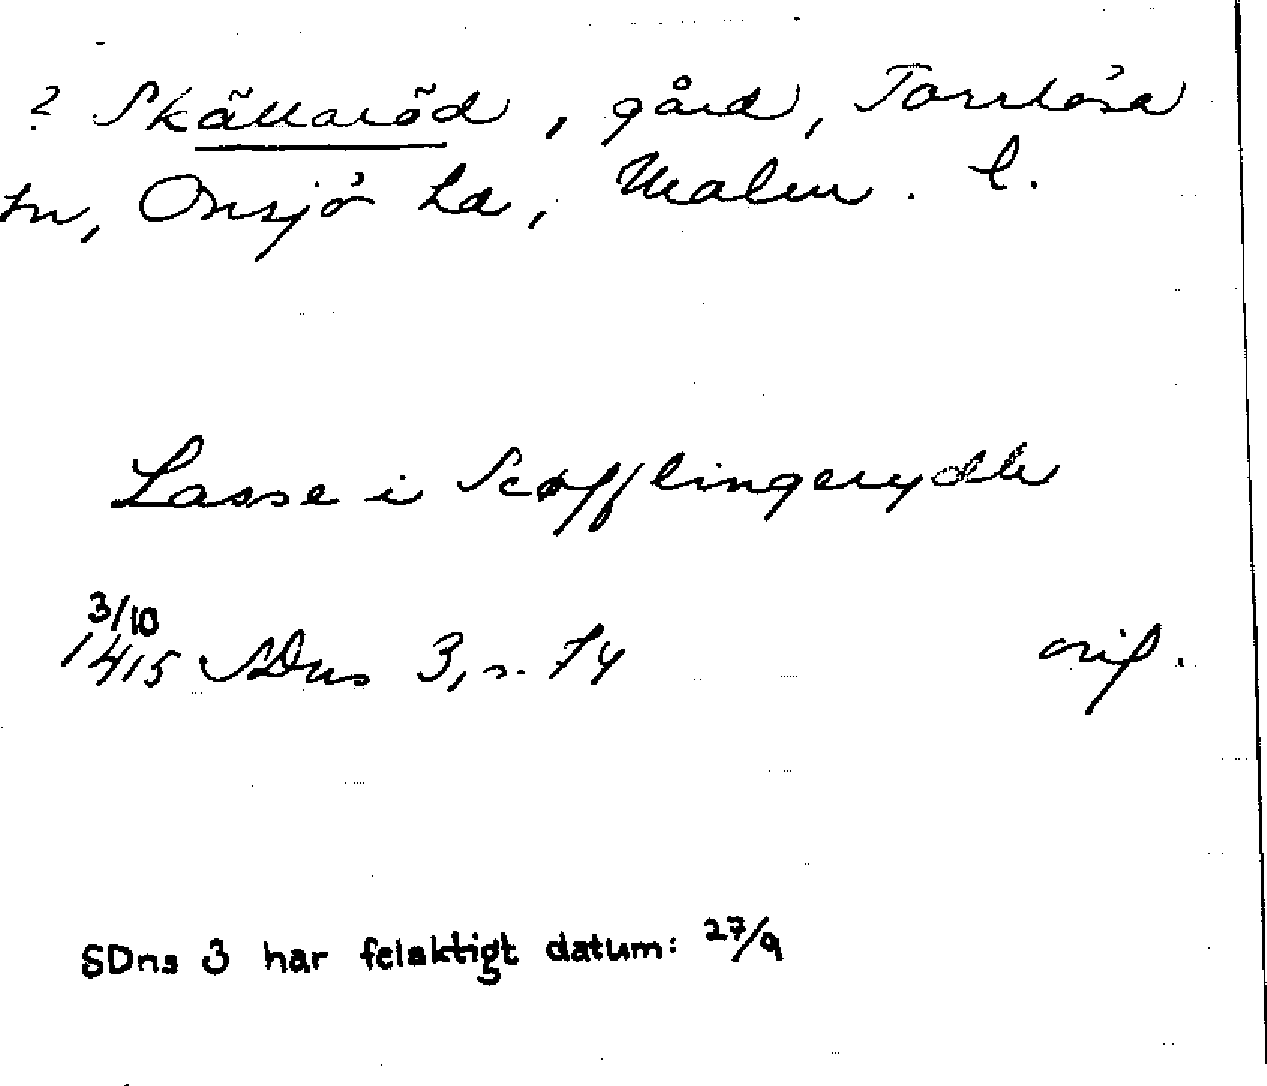 ? Skällaröd, gård, Torrlösa
sn, Onsjö hd, Malm. l.
Lasse i Scøfflingerydh
3/10
1415 SDns 3, s. 74 orig.
SDns 3 har felaktigt datum: 27/9